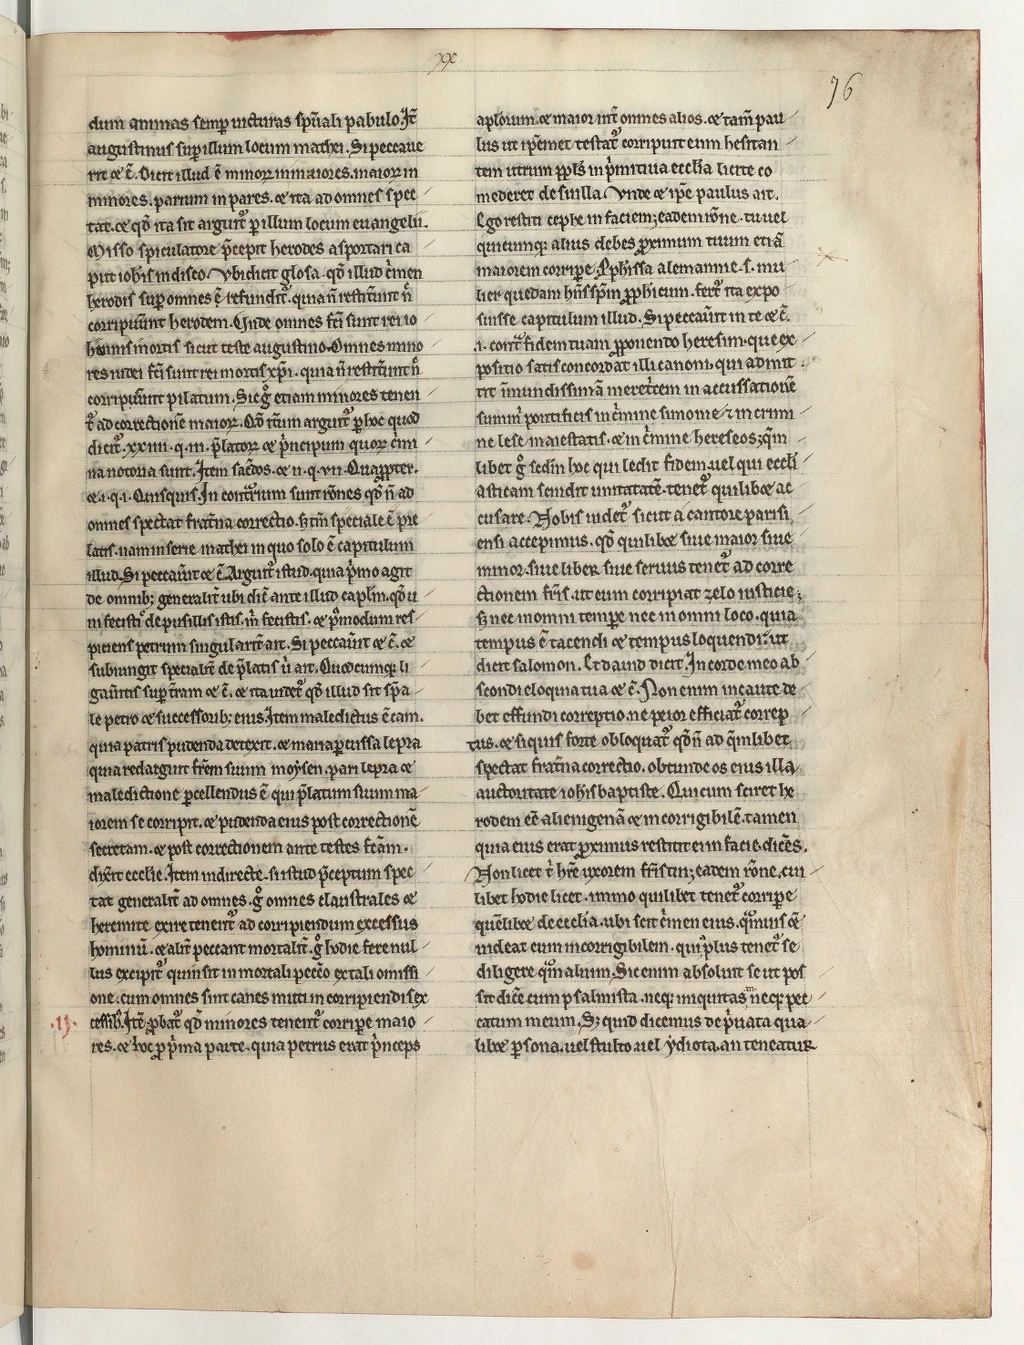 xx
76
dum animas semꝑ uicturas sp̄uali pabulo. Jt̄
augustinus suꝑ illum locum mathei. Si peccaue
rit ⁊ c̄. Dicit illud ē minorꝝ in maiores. maiorꝝ in
minores. parium in pares. ⁊ ita ad omnes spec
tat. ⁊ qđ ita sit arguit᷑ ꝑ illum locum euangelii.
Misso spiculatore p̄cepit herodes asportari ca
put ioh̄is in disco. Vbi dicit glosa. qđ illud c̄men
herodis suꝑ omnes ē refundit᷑. quia n̄ restit̄unt n̄
corripu̅unt herodem. Unde omnes fc̄i sunt rei io
hannis mortis sicut teste augustino. Omnes mino
res iudei fc̄i sunt rei mortis xp̄i. quia n̄ restit̄unt n̄
corripu̅unt pilatum. Sic g̊ etiam minores tenen
t᷑ ad correctionē maiorꝝ. Qđ t̄m arguit᷑ ꝑ hoc quod
dicit᷑. xxiiii. q. iii. p̄latorꝝ ⁊ p̄ncipum quorꝝ c̄mi
na notoria sunt. Item sac̄dos. ⁊ ii. q. vii. Quaꝓpter.
⁊. i. q. i. Quisquis. In cont̄rium sunt rōnes qđ n̄ ad
omnes spectat frat̄na correctio. sꝫ t̄m speciale ē pre
latis. nam in serie mathei in quo solo ē capitulum
illud. Si peccau̅it ⁊ c̄. Arguit᷑ istud. quia p̄mo agit
de omnibꝫ generalit̄ ubi dic̄ ante illud caplm̄. qđ u
ni fecistis de pusillis istis. m̄ fecistis. ⁊ p̄modum res
piciens petrum singularit̄ ait. Si peccau̅it ⁊ c̄. ⁊
subiungit specialit̄ de p̄latis u̅ ait. Quodcumqꝫ li
gau̅itis suꝑ t̄ram ⁊ c̄. ⁊ ita uidet᷑ qđ illud sit sp̄a
le petro ⁊ successoribꝫ eius. Item maledictus ē cam.
quia patris pudenda detexit. ⁊ maria ꝑcussa lepra
quia redarguit frēm suum moẏsen. pari lepra ⁊
maledictione ꝑcellendus ē qui p̄latum suum ma
iorem se corripit. ⁊ pudenda eius post correctionē
secretam. ⁊ post correctionem ante testes fc̄am.
dixerit ecclie. Item indirecte. si istud p̄ceptum spec
tat generalit̄ ad omnes. g̊ omnes claustrales ⁊
heremite exire tenent᷑ ad corripiendum excessus
hominū. ⁊ alit̄ peccant mortalit̄. g̊ hodie fere nul
lus excipit᷑ quin sit in mortali pecc̄o ex tali omissi
one. cum omnes sint canes muti in corripiendis ex
.19.
cessibꝫ. Itē ꝓbat᷑ qđ minores tenent᷑ corripe maio
res. ⁊ hoc ꝓ p̄ma parte. quia petrus erat p̄nceps
aplōrum. ⁊ maior int̄ omnes alios. ⁊ tam̄ pau
lus ut ip̄emet testat᷑ corripuit eum hesitan
tem utrum ꝓpl̄s in p̄mitiua ecclia licite co
mederet de suilla. Vnde ⁊ ip̄e paulus ait.
Ego restiti cephe in faciem; eadem rōne. tu uel
quicumqꝫ alius debes ꝓximum tuum etiā
maiorem corripe. Ꝓphissa alemannie. s. mu
lier quedam hn̄s sp̄m ꝓphicum. fert᷑ ita expo
suisse capitulum illud. Si peccau̅it in te ⁊ c̄.
.i. cont̄ fidem tuam ꝓponendo heresim. que ex
positio satis concordat illi canoni. qui admit
tit īmundissimā meret̄cem in accussationē
summi pontificis in c̄mine simonie ⁊ in crimi
ne lese maiestatis. ⁊ in c̄mine hereseos; qm̄
libet g̊ sedm̄ hoc qui ledit fidem. uel qui eccl̄i
asticam scindit unitatatē. tenet᷑ quilibꝫ ac
cusare. Nobis uidet᷑ sicut a cantore parisi
ensi accepimus. qđ quilibꝫ siue maior siue
minor. siue liber siue seruus tenet᷑ ad corre
ctionem fr̄is. ut eum corripiat zelo iusticie;
sꝫ nec in omni temꝑe nec in omni loco. quia
tempus ē tacendi ⁊ tempus loquendi. ut
dicit salomon. Et dauid dicit. In corde meo ab
scondi eloquia tua ⁊ c̄. Non enim incaute de
bet effundi correptio. ne peior efficiat᷑ correp
tus. ⁊ si quis forte obloquat᷑ qđ n̄ ad q̄mlibet
spectat frat̄na correctio. obtunde os eius illa
auctoritate ioh̄is baptiste. Qui cum sciret he
rodem eē alienigenā ⁊ incorrigibilē. tamen
quia eius erat ꝓximus restitit ei in facie. dicēs.
Non licet t̄ hr̄e uxorem fr̄is tui; eadem rōne. cui
libet hodie licet. immo quilibet tenet᷑ corripe
quēlibꝫ de ecclia. ubi scit c̄men eius. qm̄uis ⁊
uideat eum incorrigibilem. qui plus tenet᷑ se
diligere qm̄ alium. Sic enim absoluit se ut pos
sit dicē cum psalmista. neqꝫ iniquitas m̄ neqꝫ pec
catum meum. Sꝫ quid dicemus de p̄uata qua
libꝫ ꝑsona. uel stulto. uel ẏdiota. an teneatur